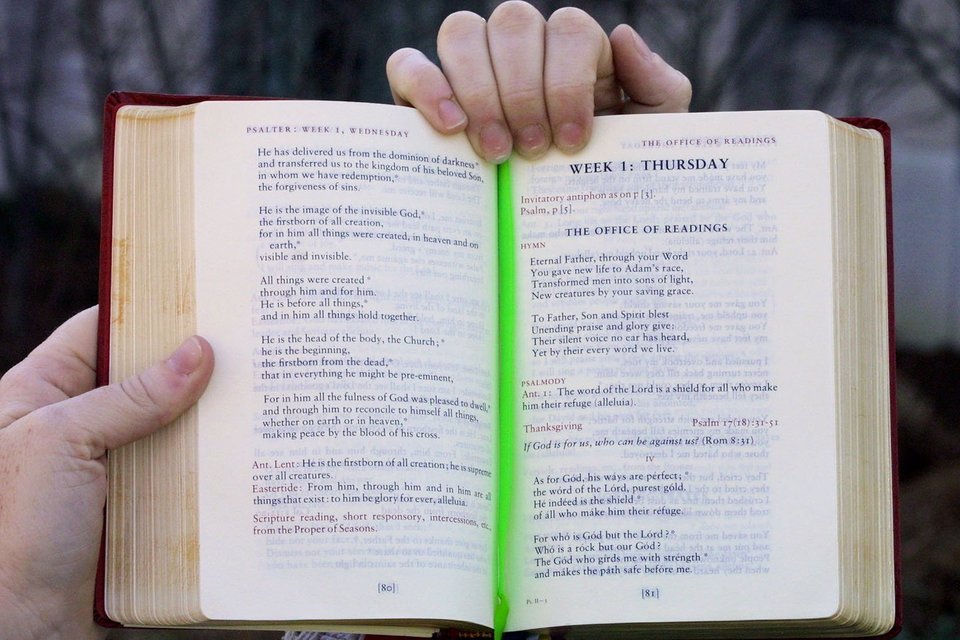 PSALTER: WEEK 1, WEDNESDAY
He has delivered us from the dominion of darkness*
and transferred us to the kingdom of his beloved Son,
in whom we have redemption,*
the forgiveness of sins.
He is the image of the invisible God,*
the firstborn of all creation,
for in him all things were created, in heaven and on
earth,*
visible and invisible.
All things were created*
through him and for him.
He is before all things,*
and in him all things hold together.
He is the head of the body, the Church;*
he is the beginning,
the firstborn from the dead,*
that in everything he might be pre-eminent,
For in him all the fulness of God was pleased to dwell,*
and through him to reconcile to himself all things,
whether on earth or in heaven,*
making peace by the blood of his cross.
Ant. Lent: He is the firstborn of all creation; he is supreme
over all creatures.
Eastertide: From him, through him and in him are all
things that exist: to him be glory for ever, alleluia.
Scripture reading, short responsory, intercessions, etc.,
from the Proper of Seasons.
[80]
THE OFFICE OF READINGS
WEEK 1: THURSDAY
Invitatory antiphon as on p [3].
Psalm, p [5].
THE OFFICE OF READINGS
HYMN
Eternal Father, through your Word
You gave new life to Adam's race,
Transformed men into sons of light,
New creatures by your saving grace.
To Father, Son and Spirit blest
Unending praise and glory give:
Their silent voice no ear has heard,
Yet by their every word we live.
PSALMODY
Ant. 1: The word of the Lord is a shield for all who make
him their refuge (alleluia).
Thanksgiving Psalm 17(18):31-51
If God is for us, who can be against us? (Rom 8:31)
IV
As for Gód, his ways are pérfect;*
the word of the Lórd, purest góld.
He indéed is the shíeld*
of all who máke him their réfuge.
For whó is Gód but the Lórd?*
Whó is a róck but our Gód?
The Gód who gírds me with stréngth*
and mákes the páth safe befóre me.
Ps. II—1
[81]